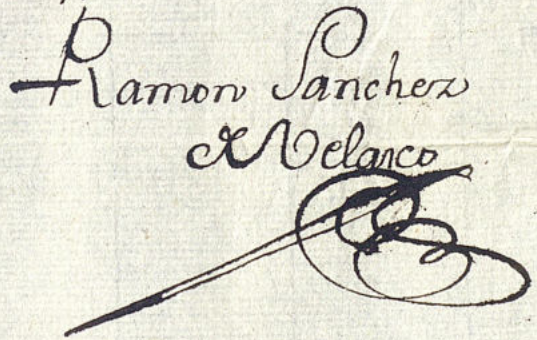 Ramon Sanchez
de Velasco